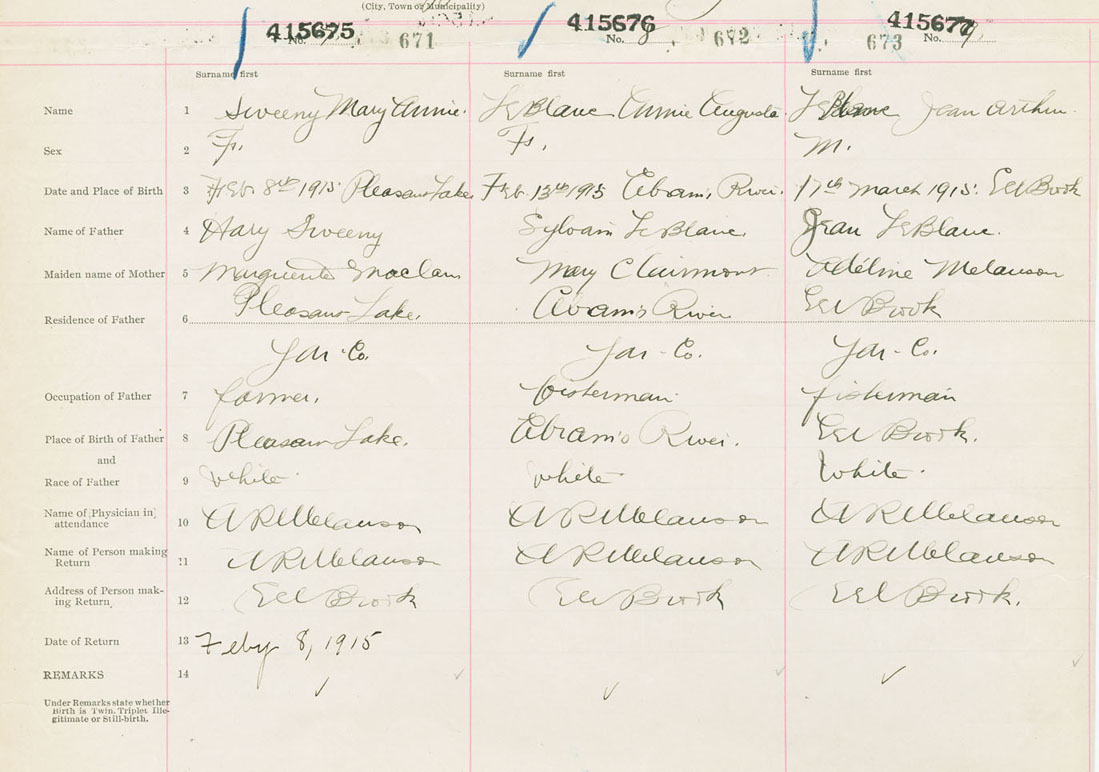 (City, Town or Municipality)
415675 415676 415677
No. 7 671 No. 8 672 673 No. 9
Surname first Surname first Surname first
Name 1 Sweeny Mary Annie. LeBlanc Annie Augusta. LeBlanc Jean Arthur.
Sex 2 F. F. M.
Date and Place of Birth 3 Feb. 8th 1915 Pleasant Lake Feb. 13th 1915 Abrams River. 17th March 1915. Eel Brook
Name of Father 4 Hary Sweeny Sylvain LeBlanc. Jean LeBlanc.
Maiden name of Mother 5 Marguerite Mary Clairmont Adéline Melanson
Residence of Father 6 Pleasant Lake. Abram's River Eel Brook
Yar-Co. Yar-Co. Yar-Co.
Occupation of Father 7 farmer. fisherman fisherman
Place of Birth of Father 8 Pleasant Lake. Abram's River. Eel Brook.
and
Race of Father 9 White White White.
Name of Physician in attendance 10 A R Melanson A R Melanson A R Melanson
Name of Person making Return 11 A R Melanson A R Melanson A R Melanson
Address of Person making Return 12 Eel Brook Eel Brook Eel Brook.
Date of Return 13 Feby 8, 1915
REMARKS 14
Under Remarks state whether
Birth is Twin, Triplet, Ille-
gitimate or Still-birth.